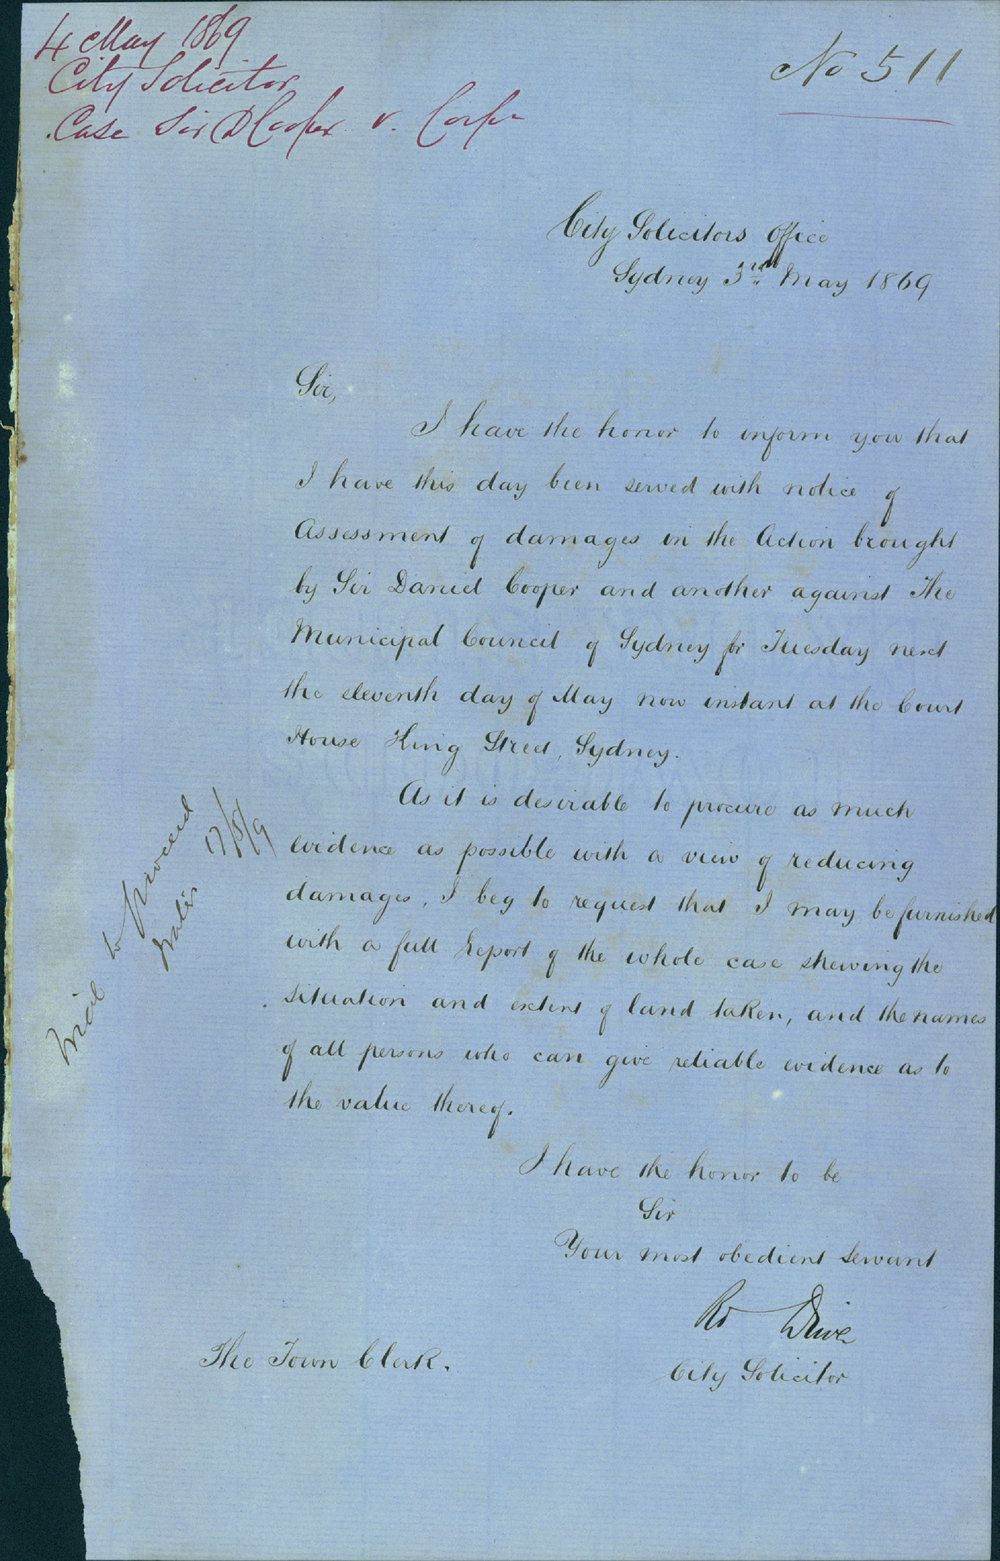 4 May 1869
City Solicitor
Case Sir D Cooper v. Corpn
No 511
City Solicitors Office
Sydney 3rd May 1869
Sir,
I have the honor to inform you that
I have this day been served with notice of
Assessment of damages in the Action brought
by Sir Daniel Cooper and another against The
Municipal Council of Sydney for Tuesday next
the eleventh day of May now instant at the Court
House King Street, Sydney.
As it is desirable to procure as much
evidence as possible with a view of reducing
damages, I beg to request that I may be furnished
with a full Report of the whole case shewing the
situation and extent of land taken, and the names
of all persons who can give reliable evidence as to
the value thereof.
I have the honor to be
Sir
Your most obedient servant
City Solicitor
The Town Clerk.
to proceed